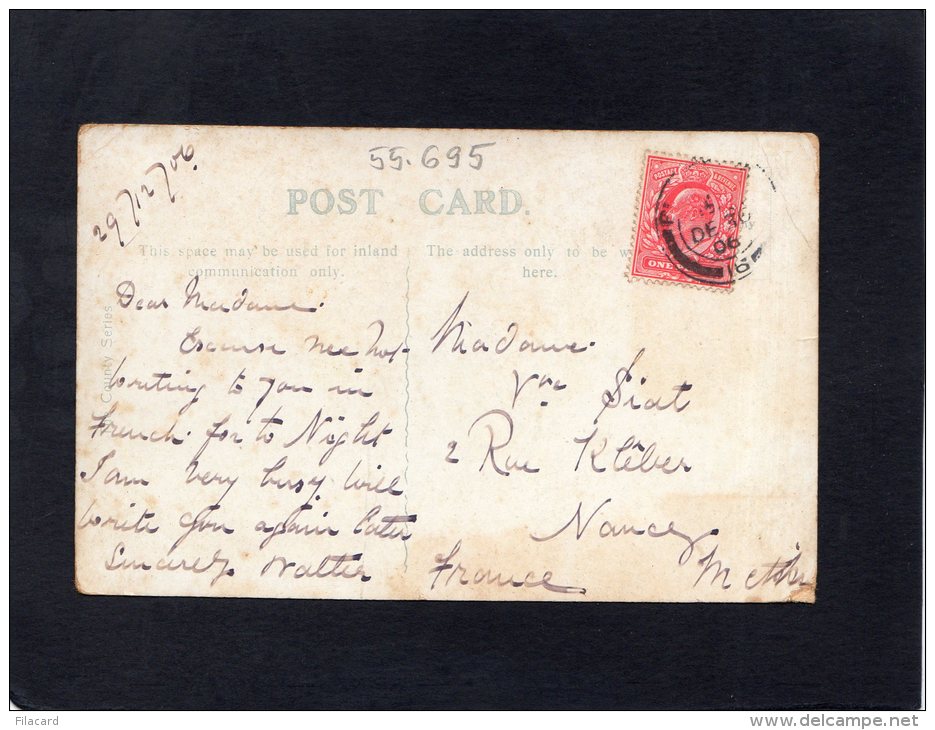 55.695
29/12/06
POST CARD.
This space may be used for inland
communication only.
The address only to be
here.
POSTAGE & REVENUE
ONE
DE
06
16
County Series
Dear Madame.
Excuse me not
writing to you in
French. for to Night
I am very busy will
write you again later
Sincerely Walter
Madame.
Vve Siat
2 Rue Kléber
Nancy
France
M et M
Filacard
www.delcampe.net